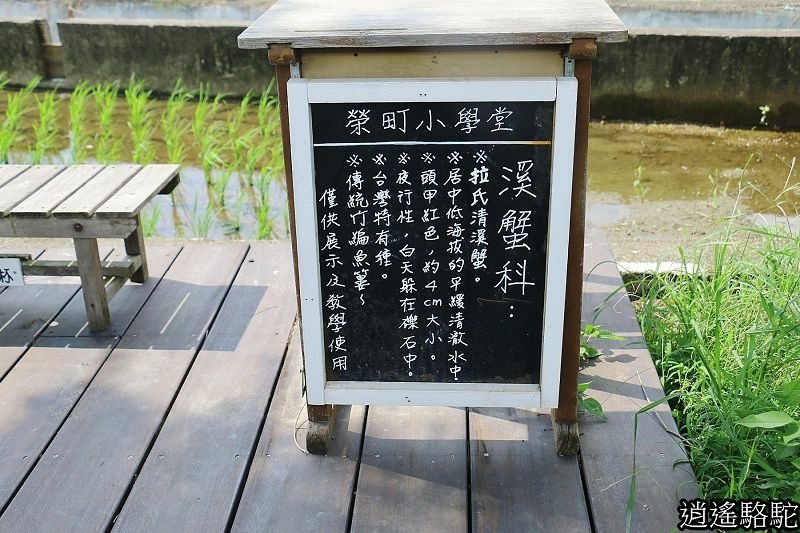 榮町小學堂
溪蟹科：
※拉氏清溪蟹。
※居中低海拔的平緩清澈水中
※頭甲紅色，約4cm大小。
※夜行性，白天躲在礫石中。
※台灣特有種。
※傳統竹編魚簍～
僅供展示及教學使用
杯
逍遙駱駝